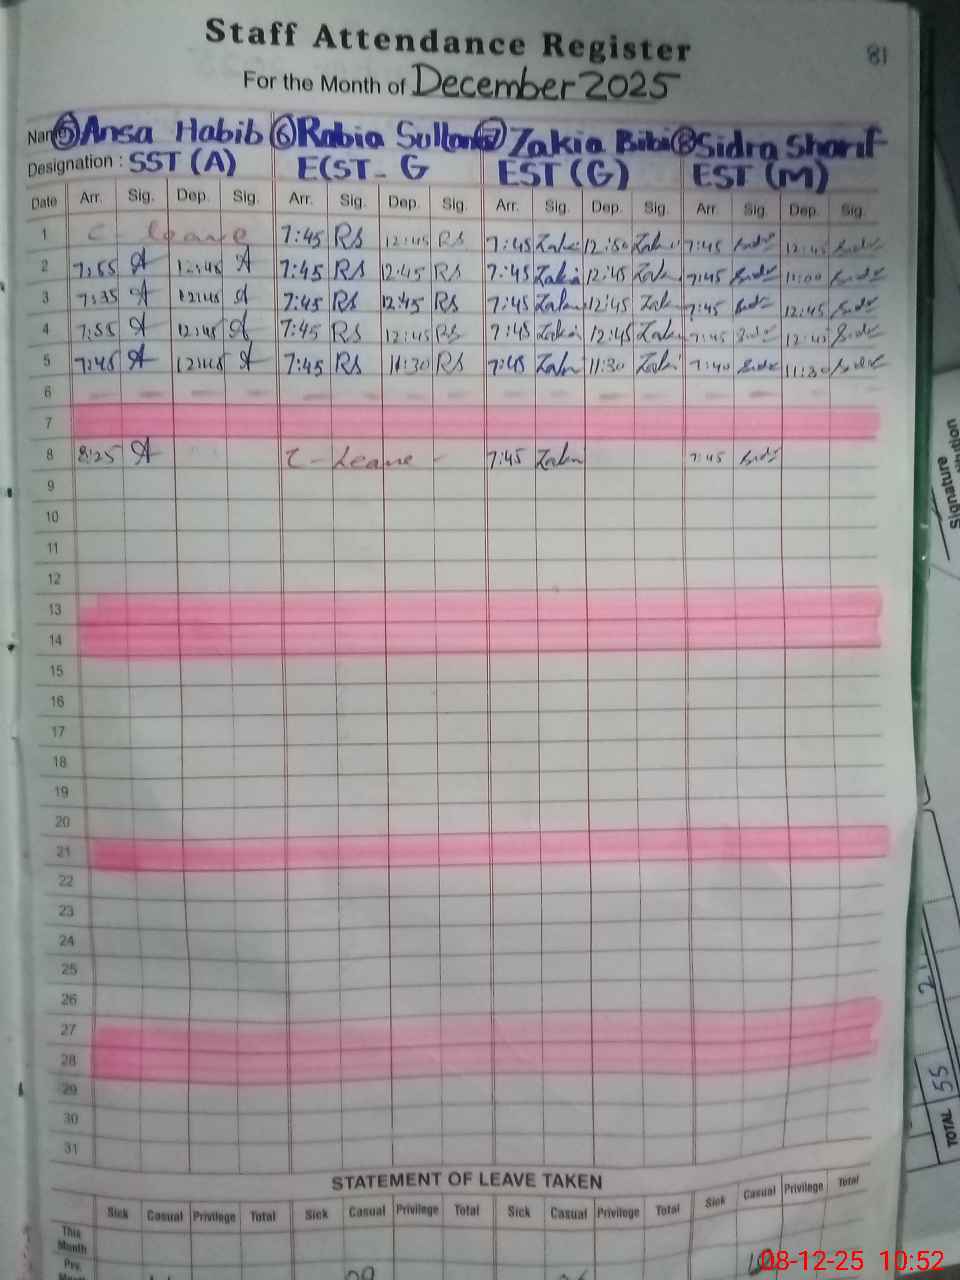 Staff Attendance Register
81
For the Month of December 2025
Nam ⑤ Ansa Habib ⑥ Rabia Sultan ⑦ Zakia Bibi ⑧ Sidra Sharif
Designation : SST (A) E(ST - G EST (G) EST (M)
Date Arr. Sig. Dep. Sig. Arr. Sig. Dep. Sig. Arr. Sig. Dep. Sig. Arr. Sig. Dep. Sig.
1 C - leave 7:45 RS 12:45 RS 7:45 Zakia 12:50 Zakia 7:45 12:45
2 7:55 A 12:45 A 7:45 RS 12:45 RS 7:45 Zakia 12:45 Zakia 7:45 11:00
3 7:35 A 12:45 A 7:45 RS 12:45 RS 7:45 Zakia 12:45 Zak 7:45 12:45
4 7:55 A 12:45 A 7:45 RS 12:45 RS 7:45 Zakia 12:45 Zakia 7:45 12:45
5 7:45 A 12:45 A 7:45 RS 11:30 RS 7:45 Zakia 11:30 Zakia 7:40 11:30
6
7
8 8:25 A C - Leave - 7:45 Zakia 7:45
9
10
11
12
13
14
15
16
17
18
19
20
21
22
23
24
25
26
27
28
29
30
31
STATEMENT OF LEAVE TAKEN
Sick Casual Privilege Total Sick Casual Privilege Total Sick Casual Privilege Total Sick Casual Privilege Total
This
Month
Pre.
Signature
55
TOTAL
08-12-25 10:52